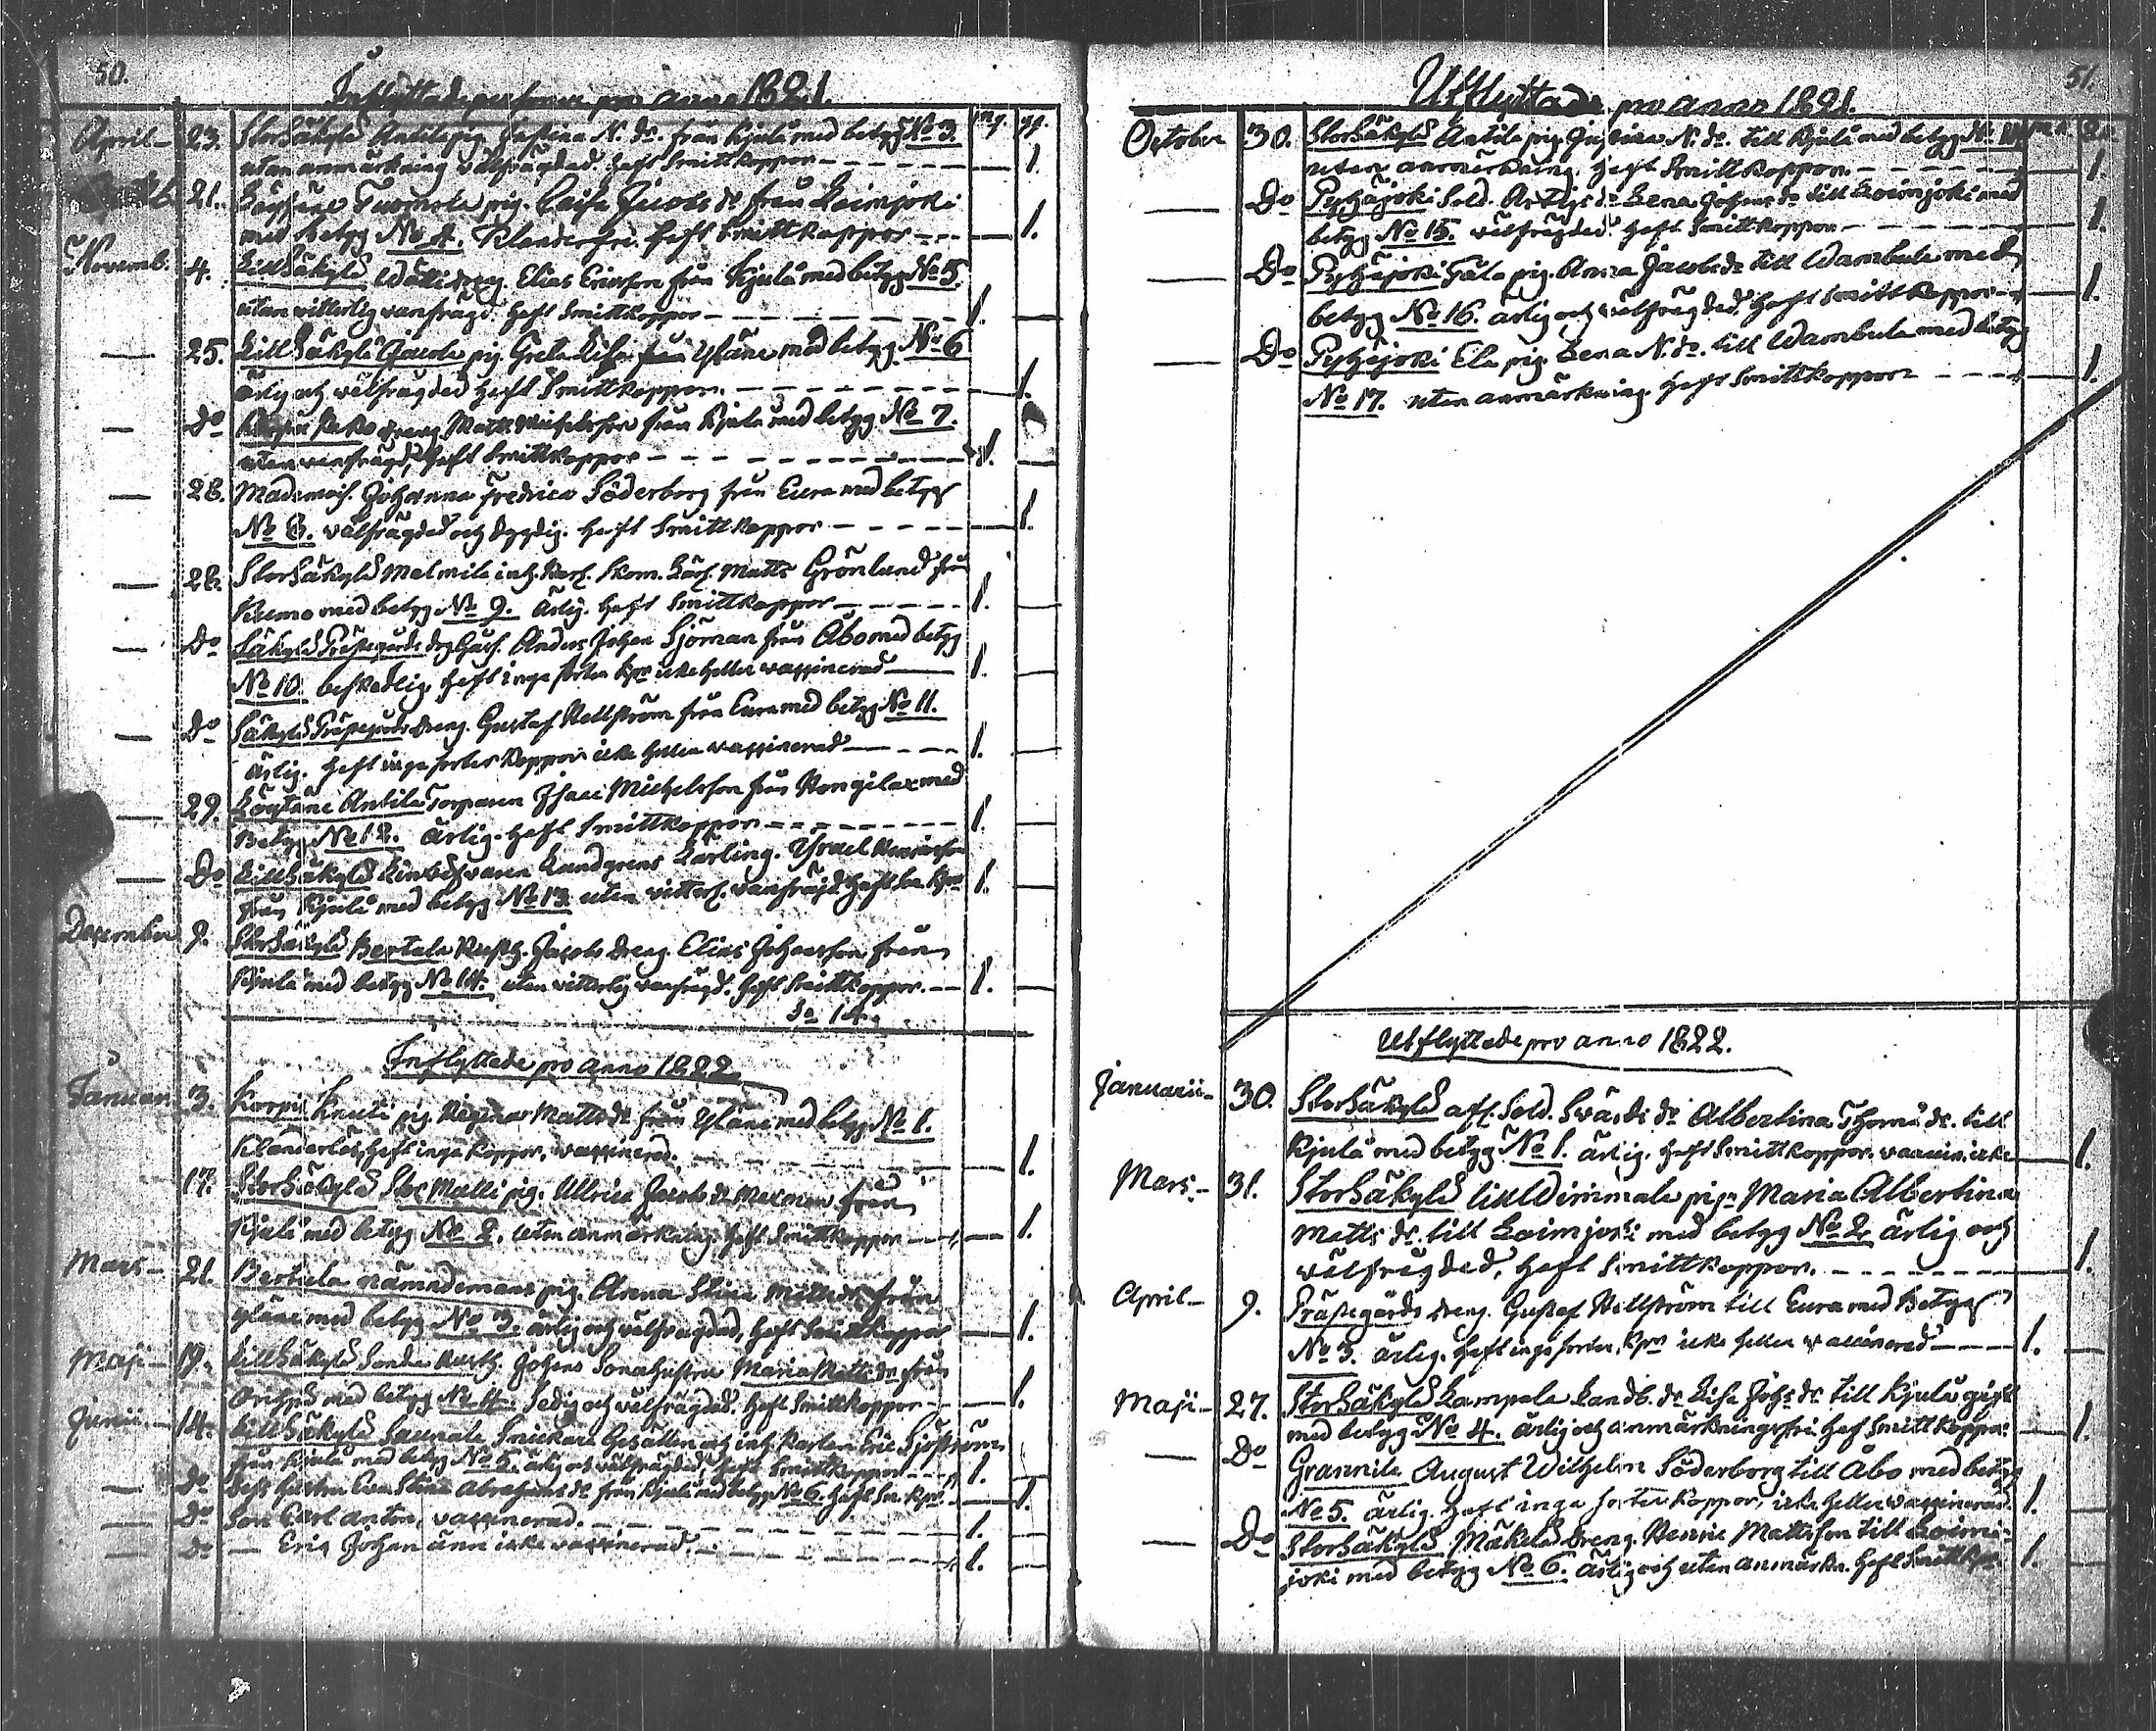 50.
Inflyttade personer pro anno 1821.
mq. qq.
April 23. Storsäkylä Antila pig. Justina N. dr. från Kjulo med betyg No 3.
utan anmärkning välfrägdad. Haft Smittkoppor 1.
21. Tuomola pig. Caisa Jacobs dr från Loimjoki
med betyg No 4. Klanderfri. Haft Smittkoppor 1.
Novemb. 4. Lillsäkylä dreng. Elias Ericsson från Kjulo med betyg No 5.
utan vitterlig vanfrägd. Haft Smittkoppor 1.
25. Lillsäkylä Jacola pig. Greta Lisa från Yläne med betyg No 6
ärlig och välfrägdad Haft Smittkoppor. 1.
Do dreng Matts Michelsson från Kjulo med betyg No 7.
utan vanfrägd, Haft Smittkoppor 1.
28. Mademois. Johanna Fredrica Söderborg från Eura med betyg
No 8. välfrägdad och dygdig. Haft Smittkoppor 1.
28. Storsäkylä Matts Grönlund från
Kumo med betyg No 9. Ärlig. Haft Smittkoppor 1.
Do Säkylä Prästegårds Anders Johan Sjöman från Åbo med betyg
No 10. beskedlig. Haft inga sorter kpr icke heller waxinerad 1.
Do Säkylä Prästegårds dreng. Gustaf Hellström från Eura med betyg No 11.
ärlig. Haft inga sorter koppor icke heller waxinerad 1.
29. Löytäne Antila Torparen Isaac Michelsson från Hongilax med
Betyg No 12. ärlig. Haft Smittkoppor 1.
Do Lillsäkylä Lundgrens Lärling. Israel
från Kjulo med betyg No 13. utan vitterl. vanfrägd. Haft Sm kpr 1.
December 9. Storsäkylä Bertula Rusth. Jacobs dreng. Elias Johansson från
Kjulo med betyg No 14. utan vitterlig vanfrägd. Haft Smittkoppor. 1.
Sa 14.
Inflyttade pro anno 1822.
Januari 3. Korpi Knuti pig. Regina Matts dr från Yläne med betyg No 1.
Klanderlös, Haft inga koppor, waxinerad. 1.
17. Storsäkylä Stor Mälli pig. Ullrica Jacobs dr från
Kjulo med betyg No 2. utan anmärkning. Haft Smittkoppor 1.
Mars 21. Bertula nämndemans pig. Anna Stina Matts dr från
Yläne med betyg No 3. ärlig och välfrägdad, Haft Smittkoppor 1.
Maji 19. Lillsäkylä Rusth. Johans Sonahustru Maria Matts dr från
med betyg No 4. Sedig och välfrägdad. Haft Smittkoppor 1.
Junii 14. Lillsäkylä Saunala Snickare Gesällen och inh. Karlen Eric Sjöström
från Kjulo med betyg No 5. ärlig och välfrägdad, Haft Smittkoppor 1.
Do Dess Hustru Eva Stina Abrahams dr från Kjulo med betyg No 6. Haft Sm. kpr. 1.
Do Son Carl Anton, vaxinerad. 1.
Do Eric Johan änn icke vaxinerad. 1.
51.
Utflyttade pro anno 1821.
October 30. Storsäkylä Antila pig. Justina N. dr. till Kjulo med betyg
utan anmärkning. Haft Smittkoppor. 1.
Do Pyhäjoki Sold. dr Lena Johans dr till Loimjoki med
betyg No 15. välfrägdad. Haft Smittkoppor 1.
Do Pyhäjoki pig. Anna Jacobs dr till Wambula med
betyg No 16. ärlig och välfrägdad. Haft Smittkoppor 1.
Do Pyhäjoki Ela pig. Lena N. dr. till Wambula med betyg
No 17. utan anmärkning. Haft Smittkoppor 1.
Utflyttade pro anno 1822.
Januarii 30. Storsäkylä afl. Sold. Swärds dr Albertina Thoma dr. till
Kjulo med betyg No 1. ärlig. Haft Smittkoppor. 1.
Mars 31. Storsäkylä pig. Maria Albertina
Matts dr. till Loimjoki med betyg No 2. ärlig och
välfrägdad, Haft Smittkoppor. 1.
April 9. Prästegårds dreng. Gustaf Hellström till Eura med Betyg
No 3. ärlig. Haft inga sorter kpr icke heller waccinerad 1.
Maji 27. Storsäkylä Lampola Landb. dr Lisa Johs dr till Kjulo gift
med betyg No 4. ärlig och anmärkningsfri. Haft Smittkoppor 1.
Do Grannila August Wilhelm Söderborg till Åbo med betyg
No 5. ärlig. Haft inga sorter koppor, icke heller waxinerad. 1.
Do Storsäkylä Mäkelä dreng. Henric Mattsson till Loim-
joki med betyg No 6. ärlig och utan anmärkn. Haft Smittkpr. 1.